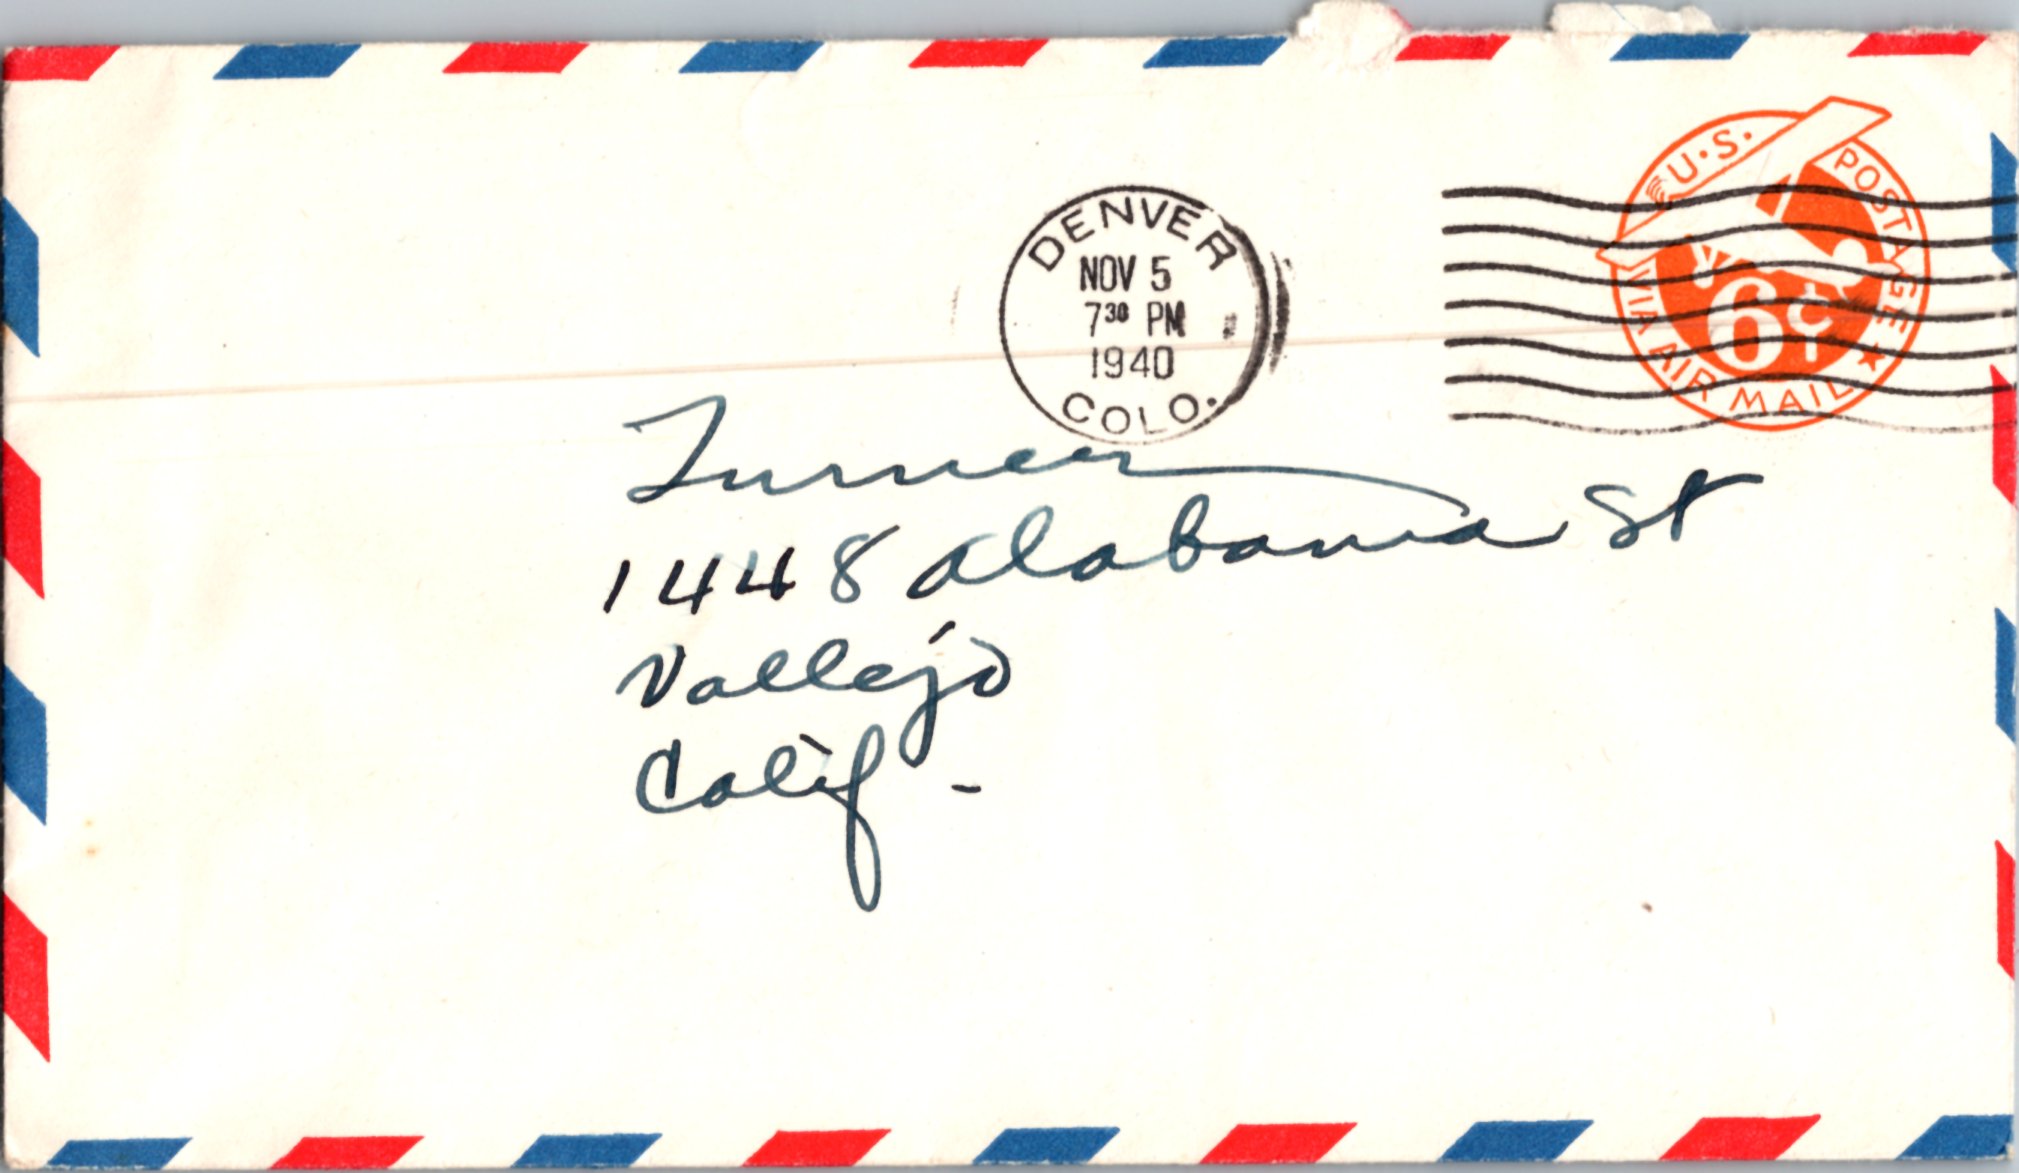 U.S. POSTAGE
VIA AIR MAIL
6¢
DENVER
NOV 5
7 30 PM
1940
COLO.
Turner
1448 Alabama St
Vallejo
Calif -